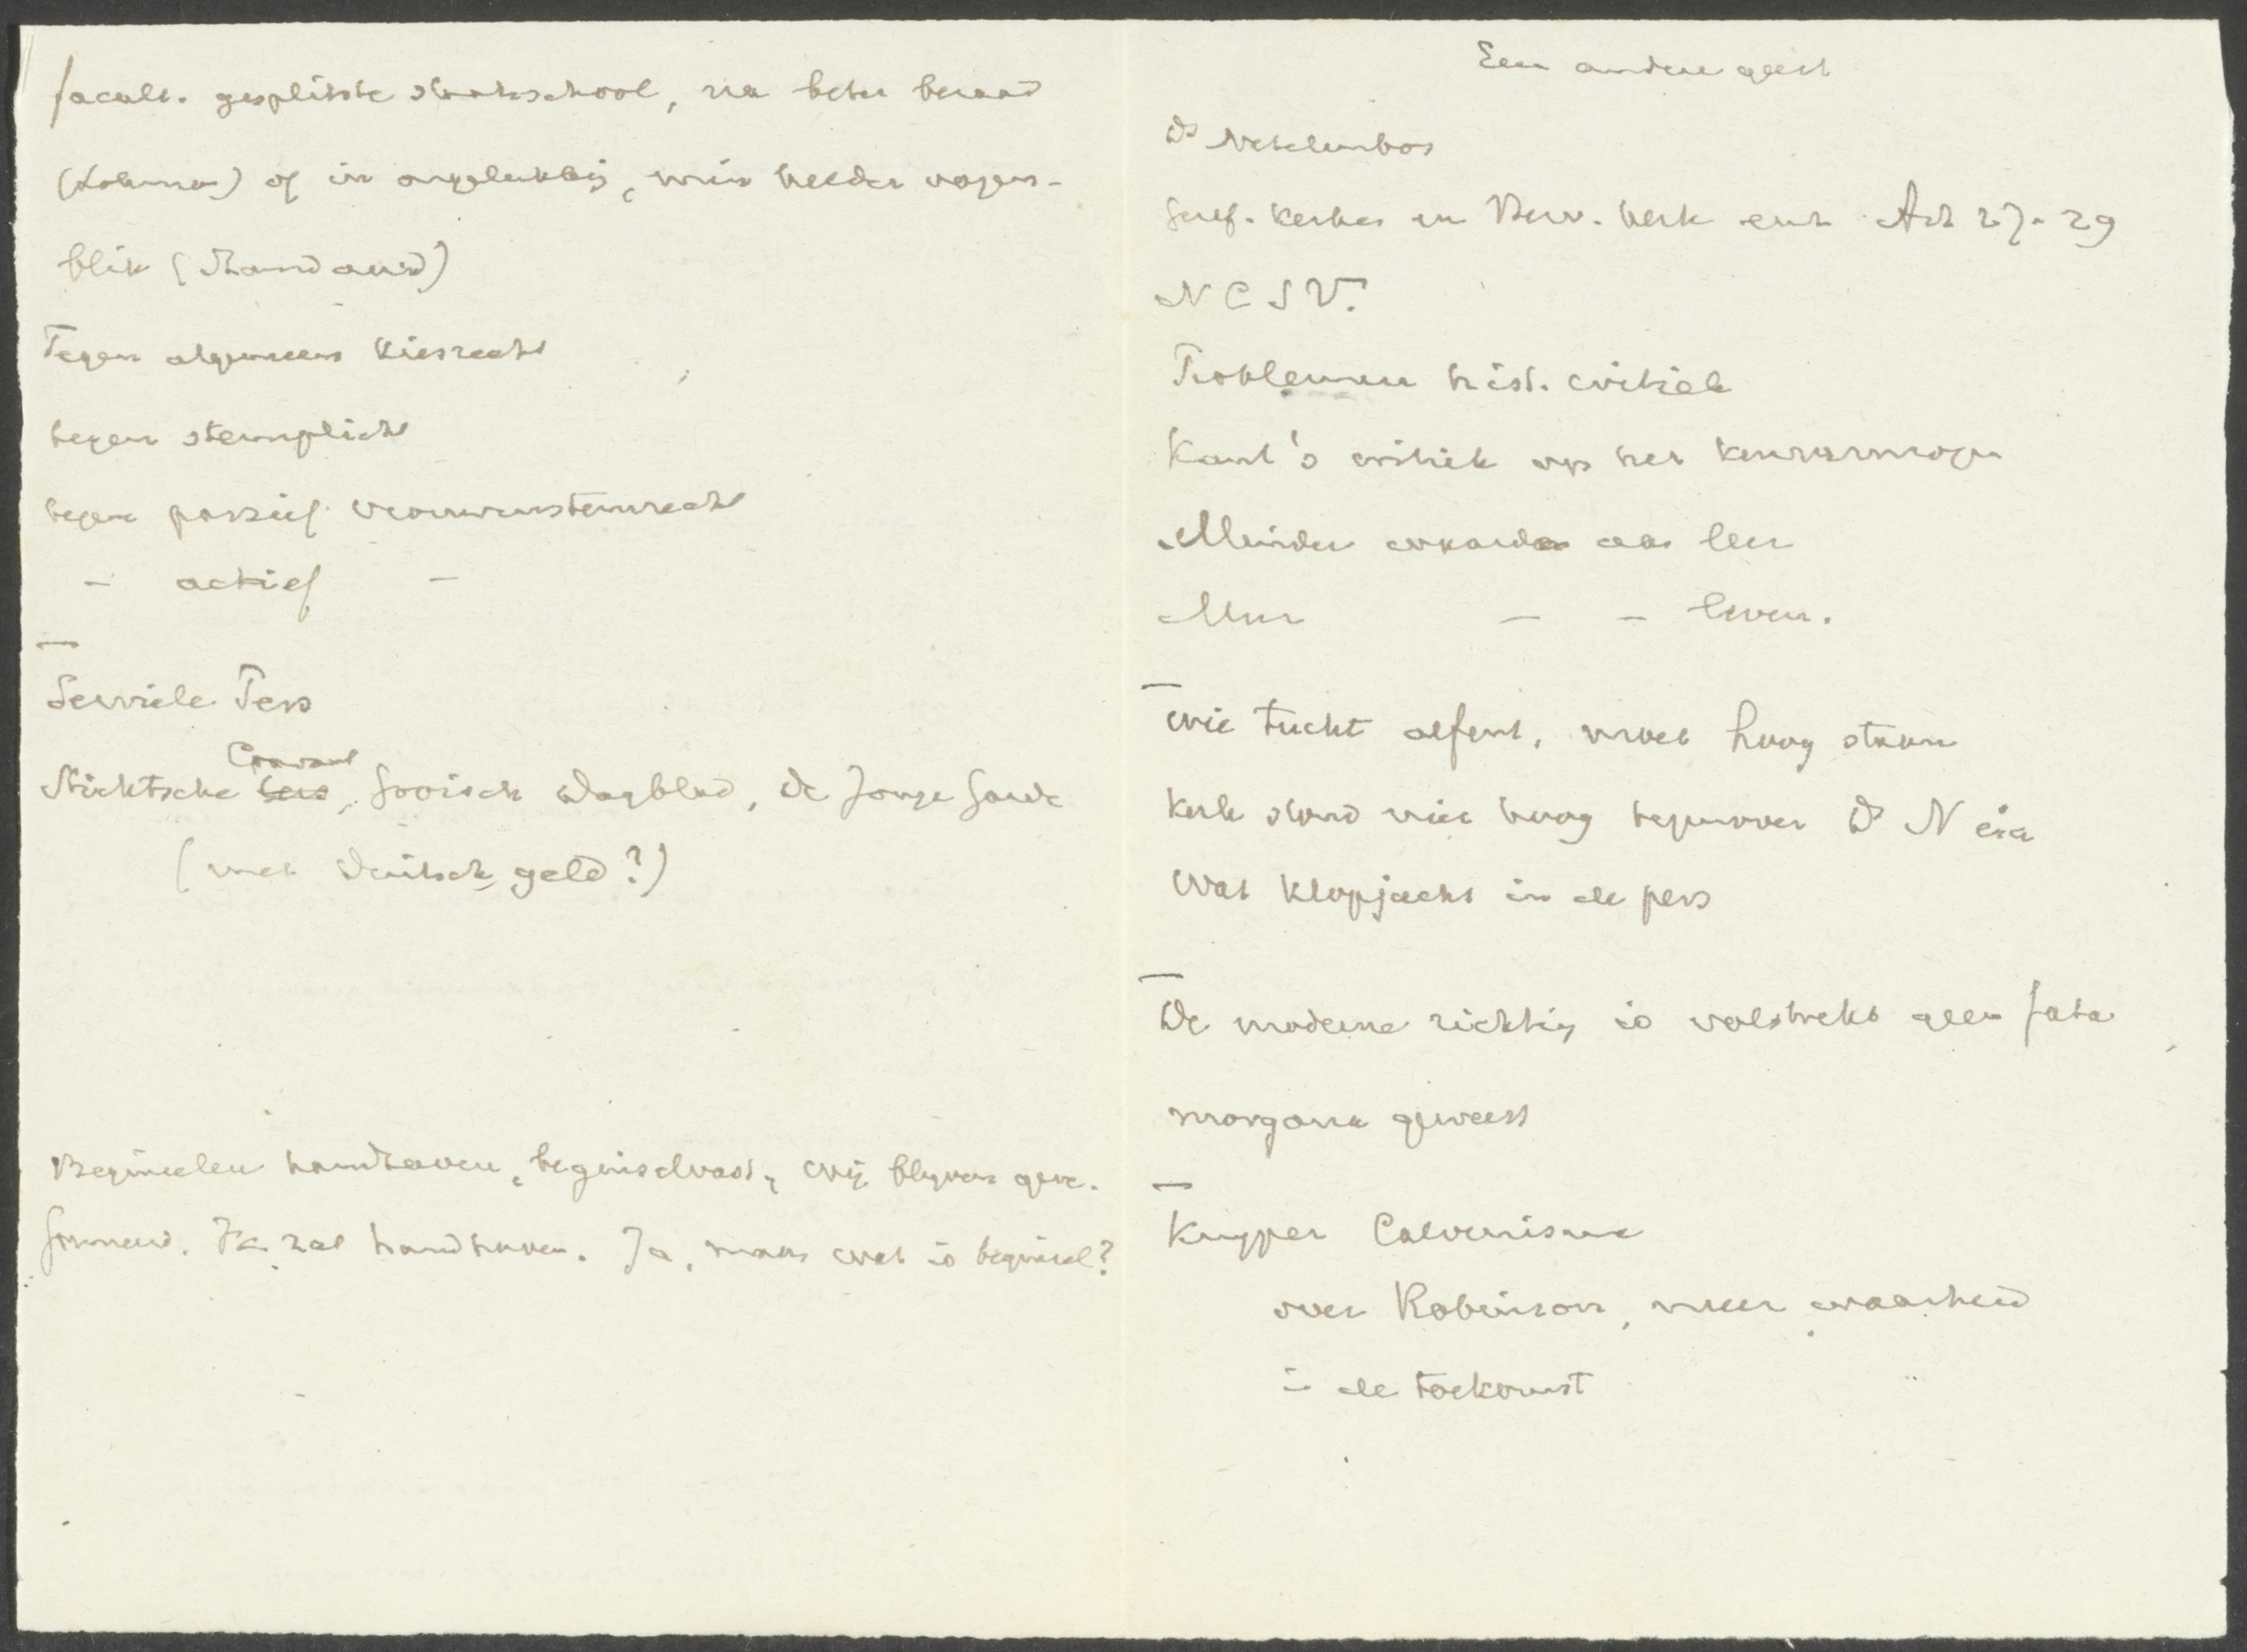 facult. gesplitste staatsschool, na beter beraad
(Lohman) of in ongelukkig, min helder oogen-
blik (Standaard)
Tegen algemeen kiesrecht
tegen stemplicht
tegen passief vrouwenstemrecht
– actief –
Serviele Pers
Courant
Stichtsche Gooisch Dagblad, De Jonge Garde
(met Duitsch geld?)
Beginselen handhaven, beginselvast, wij blijven gere-
formeerd. Ik zal handhaven. Ja, maar wat is beginsel?
Een andere geest
Ds Netelenbos
Geref. kerken en Herv. kerk Art 27-29
N C S V.
Problemen hist. critiek
Kant's critiek op het kenvermogen
Minder aan leer
Meer – – leven.
Wie tucht oefent, moet hoog staan
Kerk stond niet hoog tegenover Ds N
Wat klopjacht in de pers
De moderne richting is volstrekt geen fata
morgana geweest
Kuyper Calvinisme
over Robinson, meer waarheid
in de toekomst